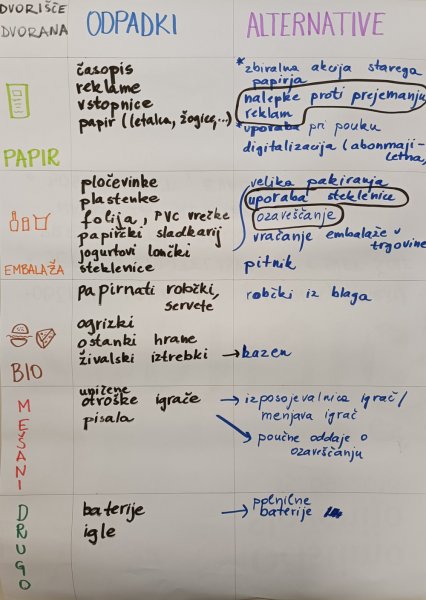 DVORIŠČE
DVORANA
ODPADKI
ALTERNATIVE
PAPIR
časopis
reklame
vstopnice
papir (letalca, žogice,...)
*zbiralna akcija starega
papirja
nalepke proti prejemanju
reklam
*uporaba pri pouku
digitalizacija (abonmaji-
letna,
EMBALAŽA
pločevinke
plastenke
folija, PVC vrečke
papirčki sladkarij
jogurtovi lončki
steklenice
velika pakiranja
uporaba steklenice
ozaveščanje
vračanje embalaže v
trgovine
pitnik
BIO
papirnati robčki,
servete
ogrizki
ostanki hrane
živalski iztrebki
robčki iz blaga
→ kazen
MEŠANI
uničene
otroške igrače
pisala
→ izposojevalnica igrač/
menjava igrač
poučne oddaje o
ozaveščanju
DRUGO
baterije
igle
→ polnilne
baterije